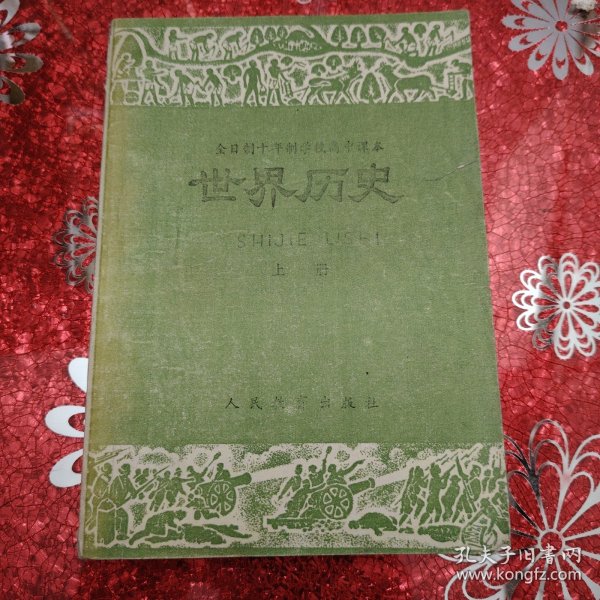 全日制十年制学校高中课本
世界历史
SHIJIE LISHI
上册
人民教育出版社
孔夫子旧书网
www.kongfz.com